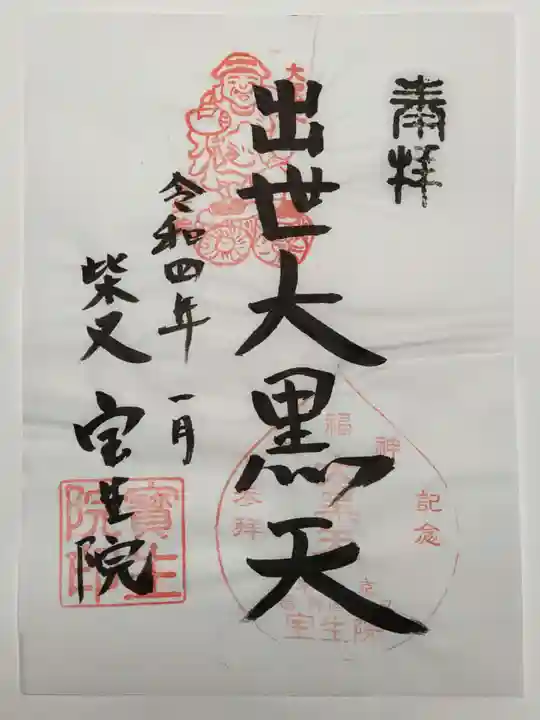 奉拝
出世大黒天
令和四年 一月
柴又 宝生院
福神
参拝
記念
宝生院
寳生
院印